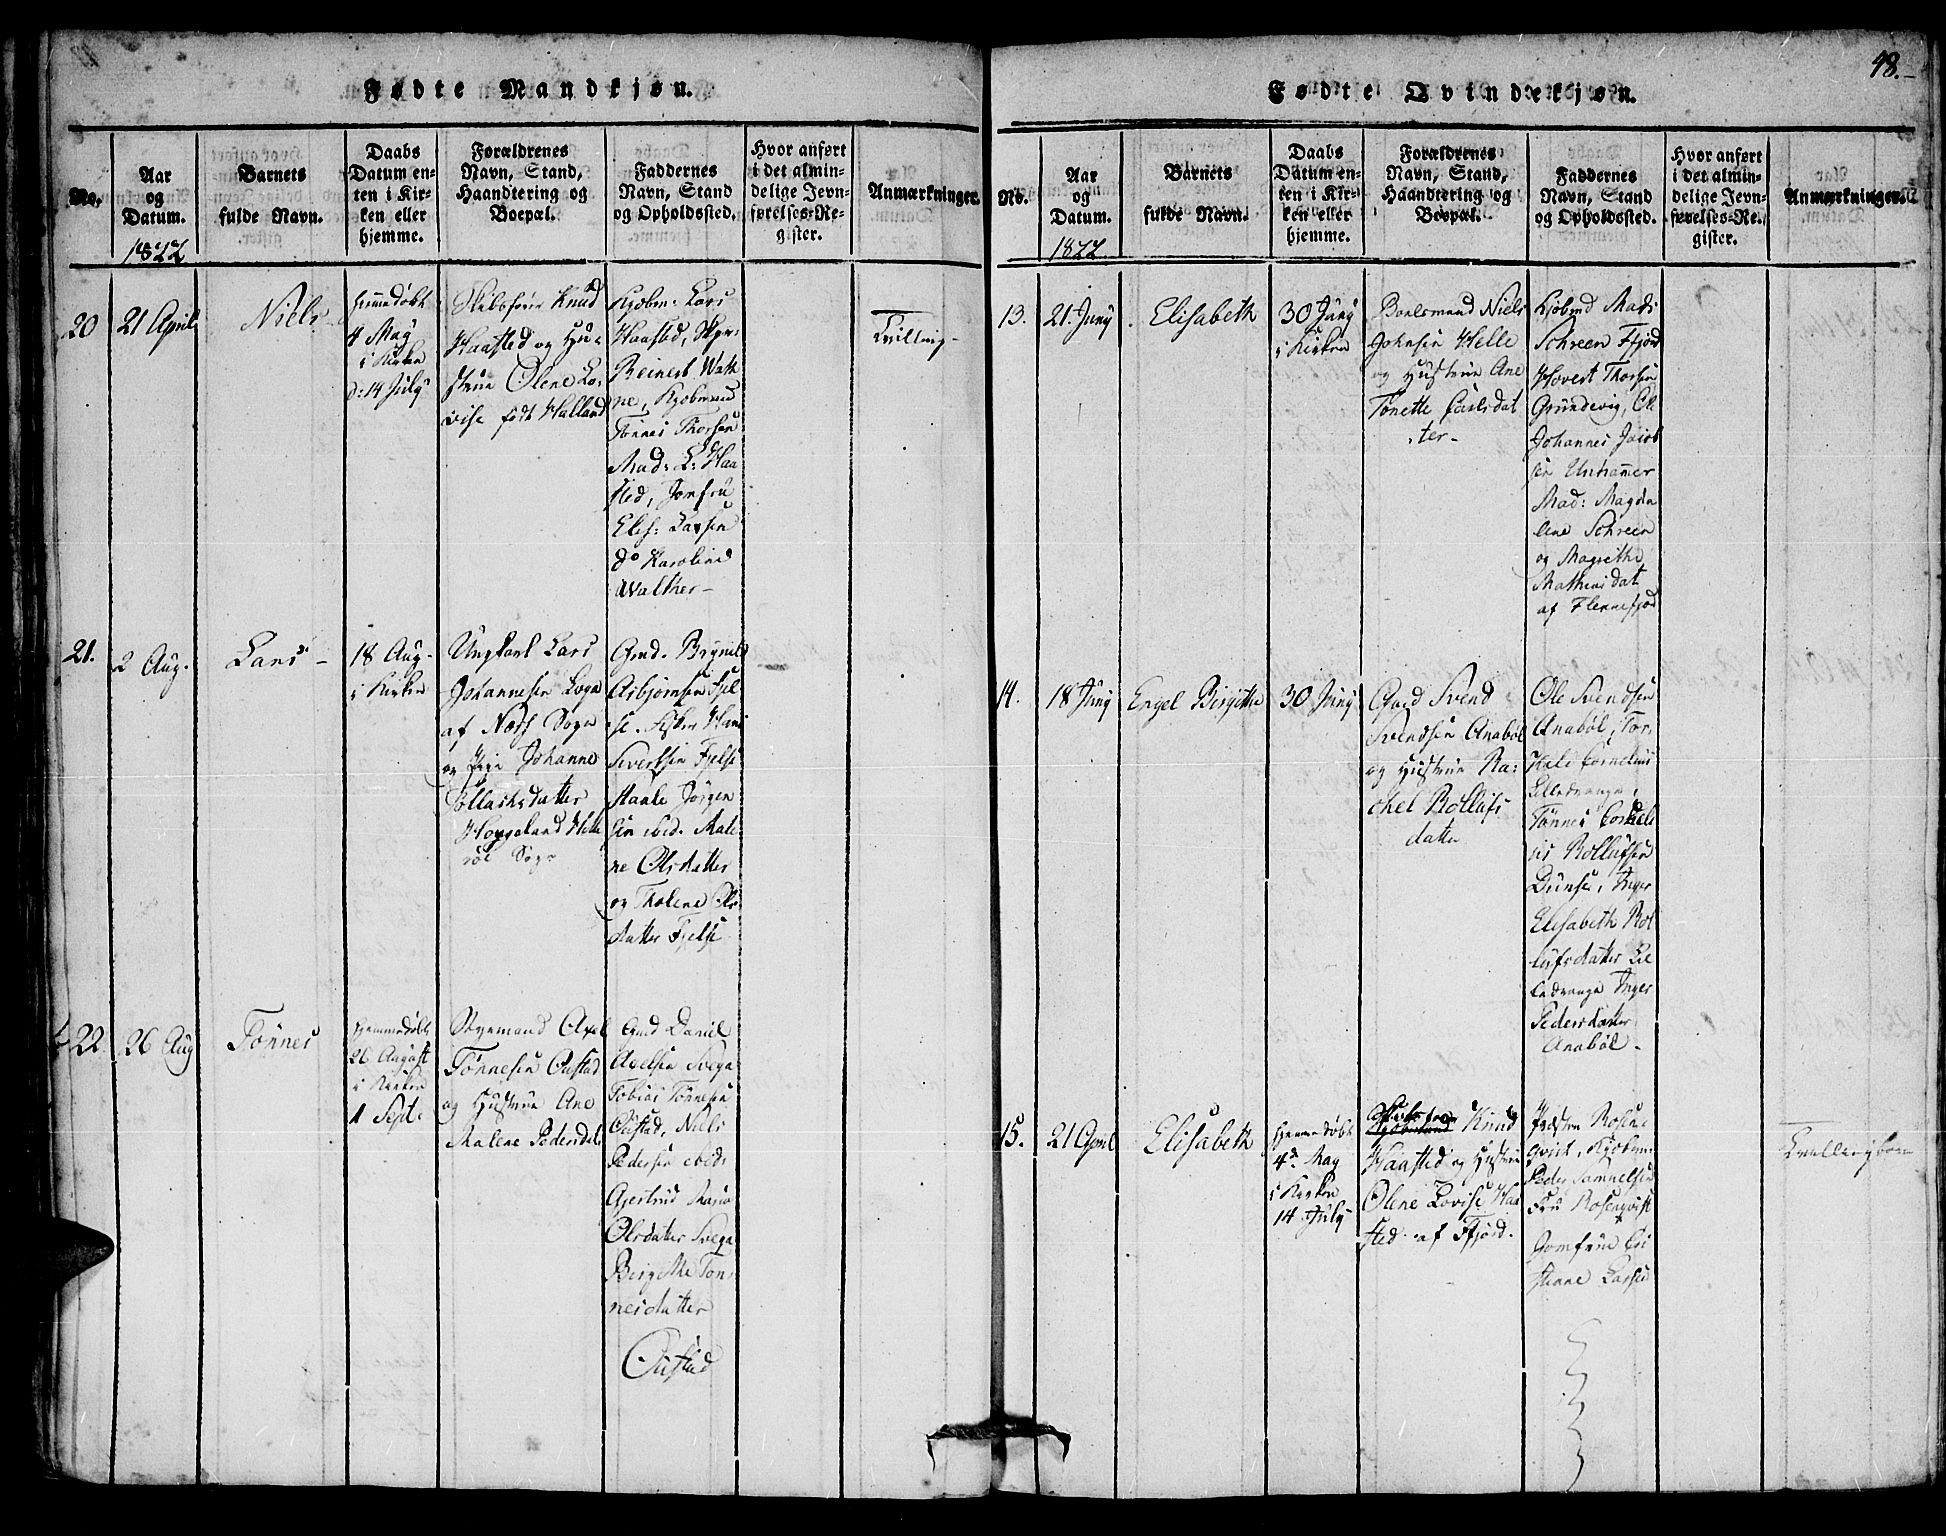 48.
Fødte Mandkjøn.
No.
Aar
og
Datum.
1822
Barnets
fulde Navn.
Daabs
Datum en-
ten i Kir-
ken eller
hjemme.
Forældrenes
Navn, Stand,
Haandtering og
Boepæl.
Faddernes
Navn, Stand
og Opholdssted.
Hvor anført
i det almin-
delige Jevn-
førelses-Re-
gister.
Anmærkninger.
20
21 April
Niels
hjemmedøbt
4 May
i Kirken
d: 14 July
Skibsfører Knud
Haasted og Hu-
strue Olene Lo-
vise født Halland
Kjøbm: Lars
Haasted, Skyr-
Reinert Wath
ne, Kjøbmand
Tønnes Thorsen
Mad: L: Haa
sted, Jomfru
Elis: Larsen
do Karoline
Walther
Tvilling
21.
2 Aug.
Lars
18 Aug.
i Kirken
Ungkarl Lars
Johannesen Loga
af Næss Sogn
og Pige Johanne
Tollachsdatter
Hougeland Hitte
röe Sogn
Gmd. Brynild
Asbjørnsen Fjel
se. Asser Hans
Sivertsen Fjelse
Staale Jörgen
sen ibid. Male
ne Olsdatter
og Tholene Ols
datter Fjelse
22
26 Aug
Tönnes
hjemmedøbt
26 August
i Kirken
1 Septr
Styrmand Axel
Tønnesen Oustad
og Hustrue Ane
Malene Pedersdat
Gmd Daniel
Axelsen Svega
Tobias Tönnesen
Oustad, Niels
Pedersen ibid:
Gjertrud Maria
Olsdatter Svega
Birgitthe Ton
nesdatter
Oustad
Fødte Qvindekjøn.
No.
Aar
og
Datum.
1822
Barnets
fulde Navn.
Daabs
Datum en-
ten i Kir-
ken eller
hjemme.
Forældrenes
Navn, Stand,
Haandtering og
Boepæl.
Faddernes
Navn, Stand
og Opholdssted.
Hvor anført
i det almin-
delige Jevn-
førelses-Re-
gister.
Anmærkninger.
13.
21. Juny
Elisabeth
30 Juny
i Kirken
Boelsmand Niels
Johnsen Helle
og Hustrue Ane
Tonette Carlsdat
ter
Kjøbmd Mads
Schreen Ffjord
Hovert Thorsen
Grundevig, Ole
Johannes Jacob
sen
Mad: Magda
lene Schreen
og Magrethe
Mathiasdat
af Flekkefjod
14.
18 Juny
Engel Birgitte
30 Juny
Gmd Svend
Svendsen Anabøl
og Hustrue Ra-
chel Rollufs
datter
Ole Svendsen
Anabøl, Tor-
kild Cornelius
Lilledrange,
Tönnes Corneli
us Rollufsen
Dunse, Inger
Elisabeth Rol
lufsdatter Lil
ledrange Inger
Pedersdatter
Anabøl
15.
21 April
Elisabeth
hjemmedøbt
4de May
i Kirken
14 July
Skibsfører Knud
Haasted og Hustrue
Olene Lovise Haa
sted af Ffjord
Præsten Rosen-
qvist, Kjøbm:
Peder Samuelsen
Fru Rosenqvist
Jomfrue Chri
stenne Larsen
Tvillingbarn